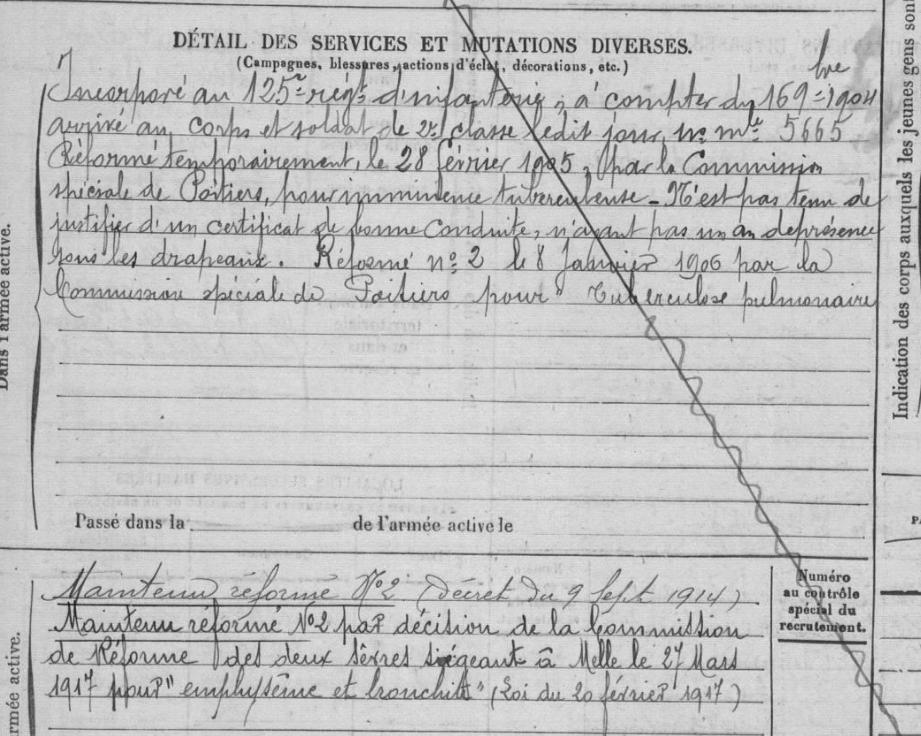 DÉTAIL DES SERVICES ET MUTATIONS DIVERSES.
(Campagnes, blessures, actions d'éclat, décorations, etc.)
Incorporé au 125e régt d'infanterie, à compter du 16 9bre 1904
arrivé au corps et soldat de 2e classe ledit jour, no mle 5665
Réformé temporairement, le 28 février 1905, par la Commission
spéciale de Poitiers, pour imminence tuberculeuse - N'est pas tenu de
justifier d'un certificat de bonne Conduite, n'ayant pas un an de présence
sous les drapeaux. Réformé no 2 le 8 Janvier 1906 par la
Commission spéciale de Poitiers pour " Tuberculose pulmonaire
Passé dans la de l'armée active le
Maintenu réformé No 2 (Décret du 9 Sept 1914)
Maintenu réformé No 2 par décision de la Commission
de Réforme des deux sèvres siégeant à Melle le 27 Mars
1917 pour " emphysème et bronchite " (Loi du 20 février 1917)
Numéro
au contrôle
spécial du
recrutement.
Dans l'armée active.
armée active.
Indication des corps auxquels les jeunes gens sont